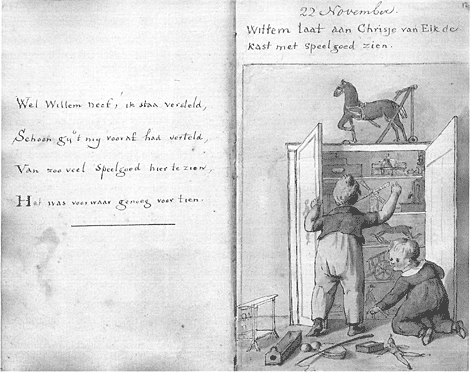 Wel Willem neef, ik staa versteld,
Schoon gij 't mij vooraf had verteld,
Van zoo veel Speelgoed hier te zien,
Het was voorwaar genoeg voor tien.
22 November.
Willem laat aan Chrisje van Eik de
kast met speelgoed zien.